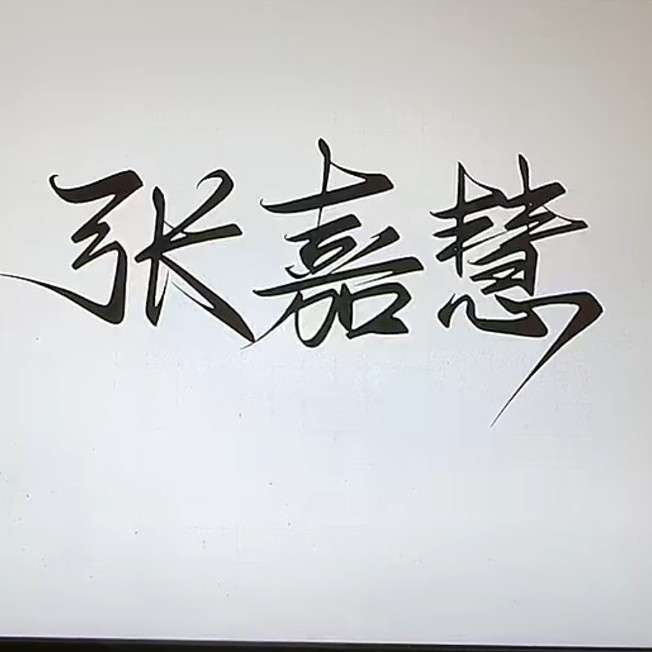 张嘉慧